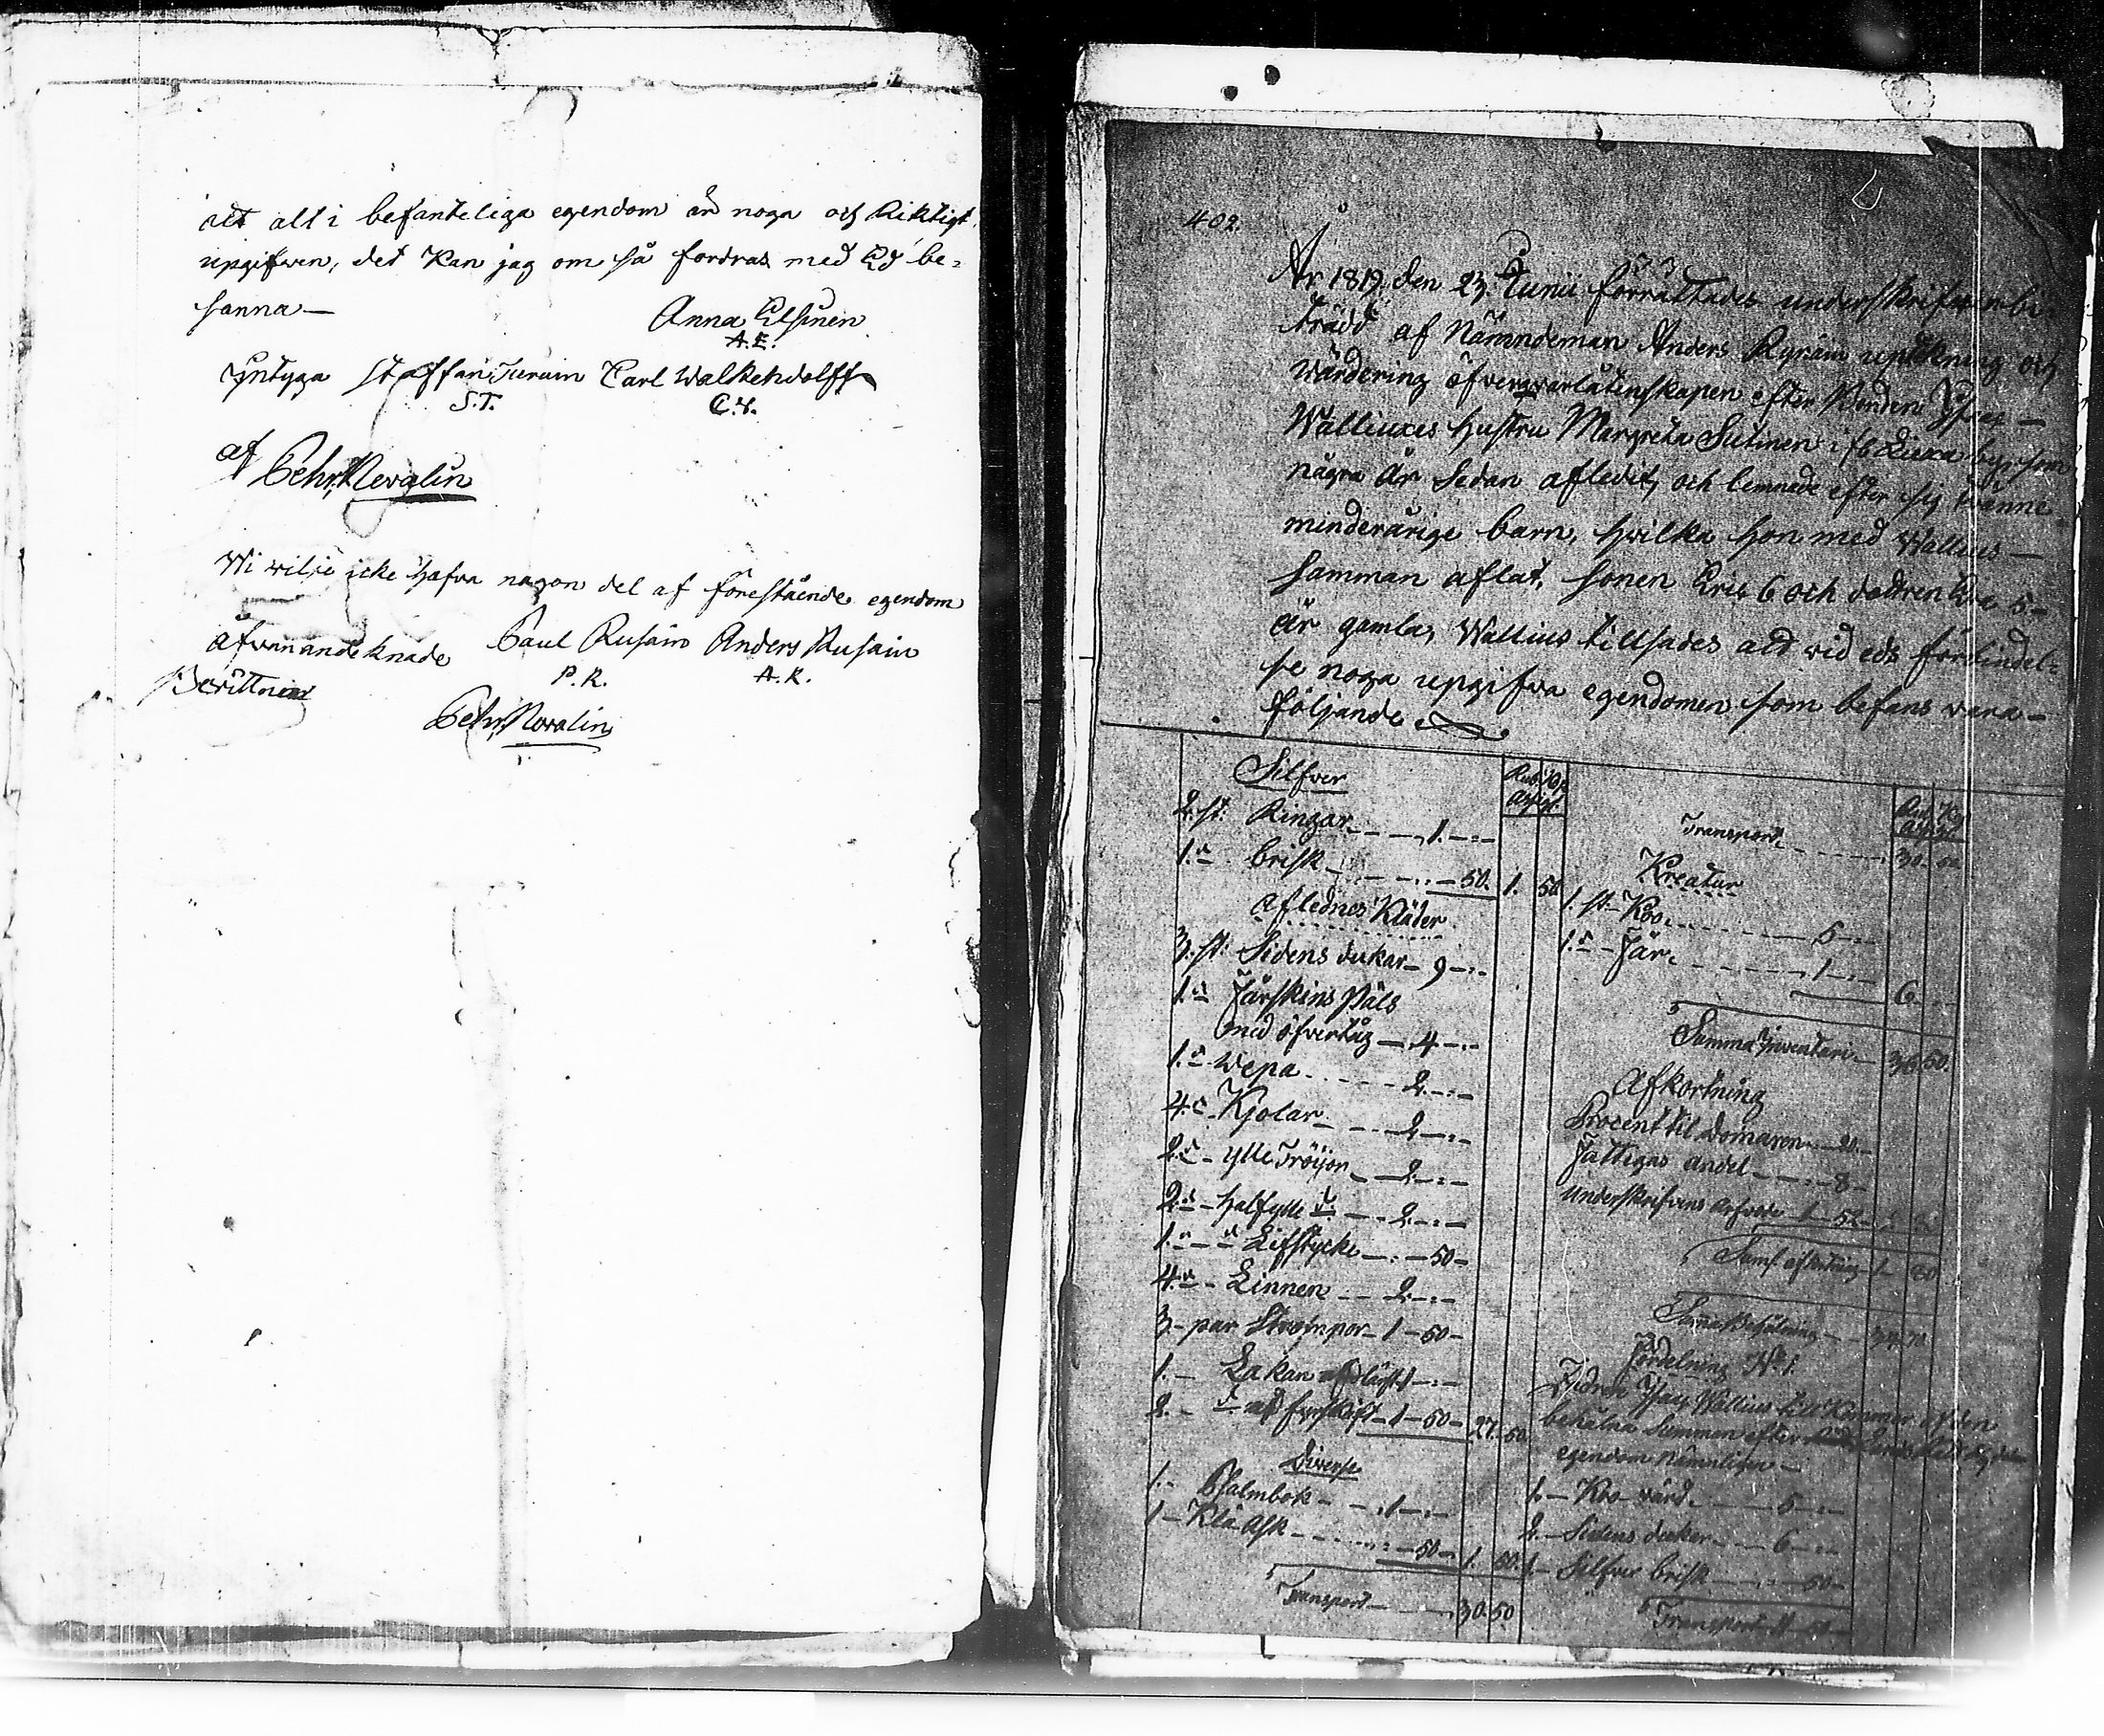 att alt i befanteliga egendom är noga och Riktigt
upgifwen, det Kan jag om så fordras med Ed be-
sanna —
Anna Elsinen
A.E.
Intyga Staffan Turuin Carl Walkehdolff
S.T. C.W.
af Pehr Nevalin
Wi wilje icke hafva nagon del af förestående egendom
åfvananteknade Paul Rusain Anders Rusain
P.R. A.R.
Skrittnin
Pehr Nevalin
402.
År 1819 den 23. Junii förrättades underskrifwen bi-
trädd af Nämndeman Anders uptekning och
Wärdering öfver qvarlåtenskapen efter Bonden
Wallius hustru Margreta Sutinen i by, som
några år Sedan afledit, och lemnade efter sig tvänne
minderårige barn, hwilka hon med Wallius —
samman aflat, sonen Eric 6 och dottren 5 —
år gamla, Wallius tillsades att vid eds förbindel-
se noga upgifva egendomen som befans vara —
följande
Silfver
Rub: Kop
Assigt
2. st: Ringar — 1. —
1. " brisk — 50. 1. 50
Aflednes Kläder
3. st: Sidens dukar — 9 —
1. " Fårskins Päls
med öfvertåg — 4 —
1. " Wepa — 2. —
4. " Kjolar — 2 —
2. " ylle Tröijor — 2 —
2. " halfylle d: — 2 —
1. " " Lifstycke — 50 —
4. " Linnen — 2 —
3 — par Strompor — 1 — 50 —
1. — Lakan af 1 —
2. — d: af 1 — 50 — 27. 50.
Diverse
1. — Psalmbok — 1 —
1 — Klä Ask — 50 — 1. 50.
Transport — 30. 50
Rub: Kop
Assigt
Transport — 30. 50.
Kreatur
1. st — Koo — 5 —
1. " — Får — 1 — 6. —
Summa Inventari — 36. 50.
Afkortning
Procent til Domaren — 20. —
Fattigas andel — 8 —
Underskrifvens Arfvode 1 — 52 —
Sums afkortning 1 — 80
Summa Behållning — 34. 70.
Fördelning No 1.
Fadren Isac Wallius tillkommer af den
behålna Summan efter
egendom nämnligen —
1. — Koo wärd — 5 —
2. — Sidens dukar — 6 —
1. — Silfver brisk — 50 —
Transport 11 — 50 —